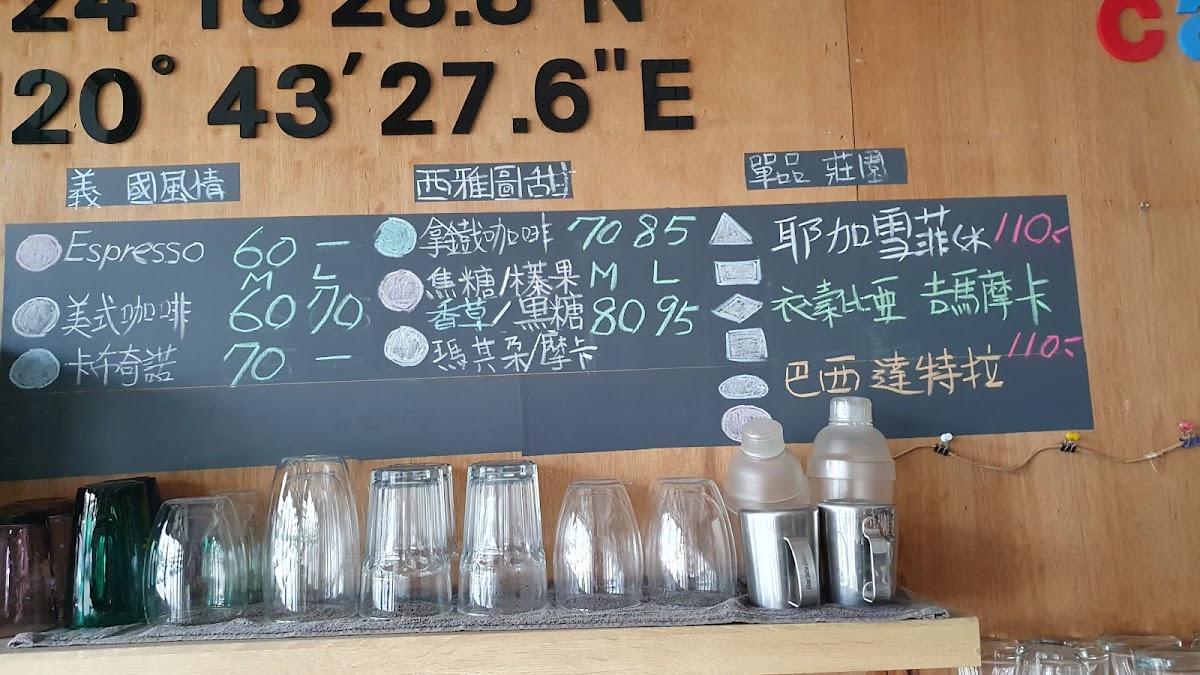 24°16'28.8"N
120°43'27.6"E
ca
義 國風情
Espresso 60 –
M L
美式咖啡 60 70
卡布奇諾 70 –
西雅圖甜
拿鐵咖啡 70 85
焦糖/榛果 M L
香草/黑糖 80 95
瑪其朵/摩卡
單品 莊園
耶加雪菲 110.-
衣索比亞 吉馬摩卡
110.-
巴西達特拉